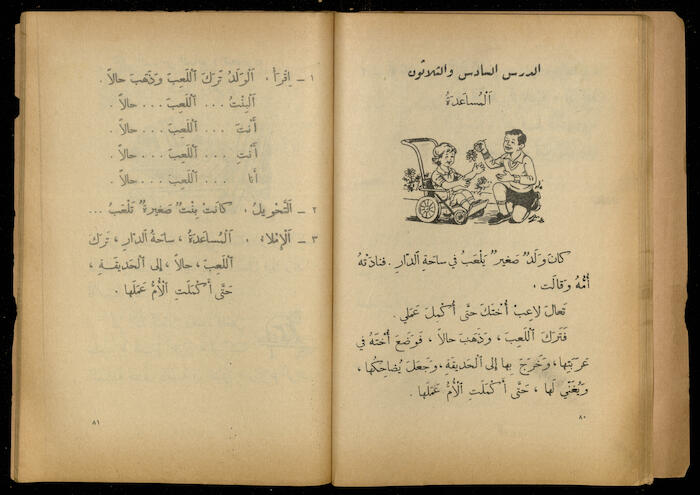 الدرس السادس والثلاثون
اَلْمُساعَدَةُ
كانَ وَلَدٌ صَغيرٌ يَلْعَبُ في ساحَةِ الدّارِ . فَنادَتْهُ
أُمُّهُ وَقالَت .
تَعالَ لاعِبْ أُخْتَكَ حَتّى أُكْمِلَ عَمَلي .
فَتَرَكَ اَللَّعِبَ ، وَذَهَبَ حالاً ، فَوَضَعَ أُخْتَهُ في
عَرَبَتِها ، وَخَرَجَ بِها إِلى اَلْحَديقَةِ ، وَجَعَلَ يُضاحِكُها ،
وَيُغَنّي لَها ، حَتّى أَكْمَلَتِ اَلْأُمُّ عَمَلَها .
٨٠
١ ــ اِقْرَأْ . اَلْوَلَدُ تَرَكَ اَللَّعِبَ وَذَهَبَ حالاً .
اَلْبِنْتُ ... اَللَّعِبَ ... حالاً .
أَنْتَ ... اَللَّعِبَ ... حالاً .
أَنْتِ ... اَللَّعِبَ ... حالاً .
أَنا ... اَللَّعِبَ ... حالاً .
٢ ــ اَلتَّحْويلُ . كانَتْ بِنْتٌ صَغيرَةٌ تَلْعَبُ ...
٣ ــ اَلْإِمْلاءُ . اَلْمُساعَدَةُ ، ساحَةُ اَلدّارِ ، تَرَكَ
اَللَّعِبَ ، حالاً ، إِلى اَلْحَديقَةِ ،
حَتّى أَكْمَلَتِ اَلْأُمُّ عَمَلَها .
٨١